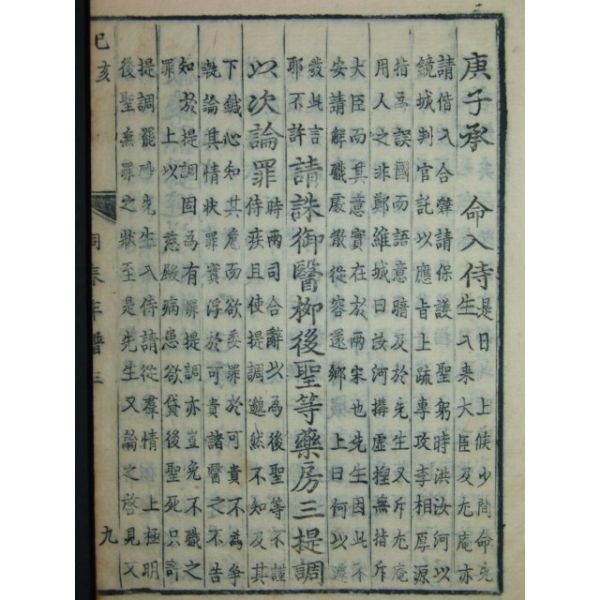 庚子承 命入侍
是日 上候少間命先
生入來大臣及尤庵亦
請偕入合辭請保護 聖躬時洪汝河以
鏡城判官託以應旨上疏專攻李相厚源
指爲誤國而語意暗及於先生又斥尤庵
用人之非鄭維城曰汝河搆虛捏無指斥
大臣而其意實在於兩宋也先生因此不
安請解職散從容還鄉 上曰何以遽
發此言
耶不許
請誅御醫柳後聖等藥房三提調
以次論罪
時兩司合辭以爲後聖等不謹
侍疾且使提調邈然不知及其
下鍼心知其危而欲委罪於可貴不爲爭
執論其情狀罪實浮於可貴諸醫之不告
如於提調固爲有罪提調亦豈免不職之
罪 上以 慈殿病患欲貸後聖死只竄
提調罷先生入侍請從羣情 上極明
後聖無罪之狀至是先生又論之啓見文
己亥
同春年譜三
九